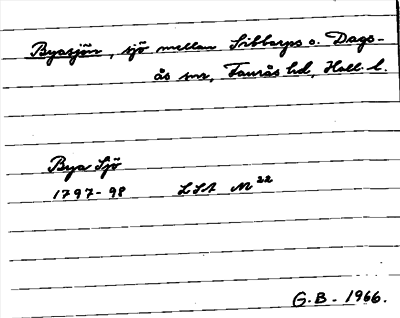 Byasjön, sjö mellan Sibbarps o. Dags-
ås snr, Faurås hd, Hall. l.
Bya Sjö
1797-98 LSA M 22
G.B. 1966.